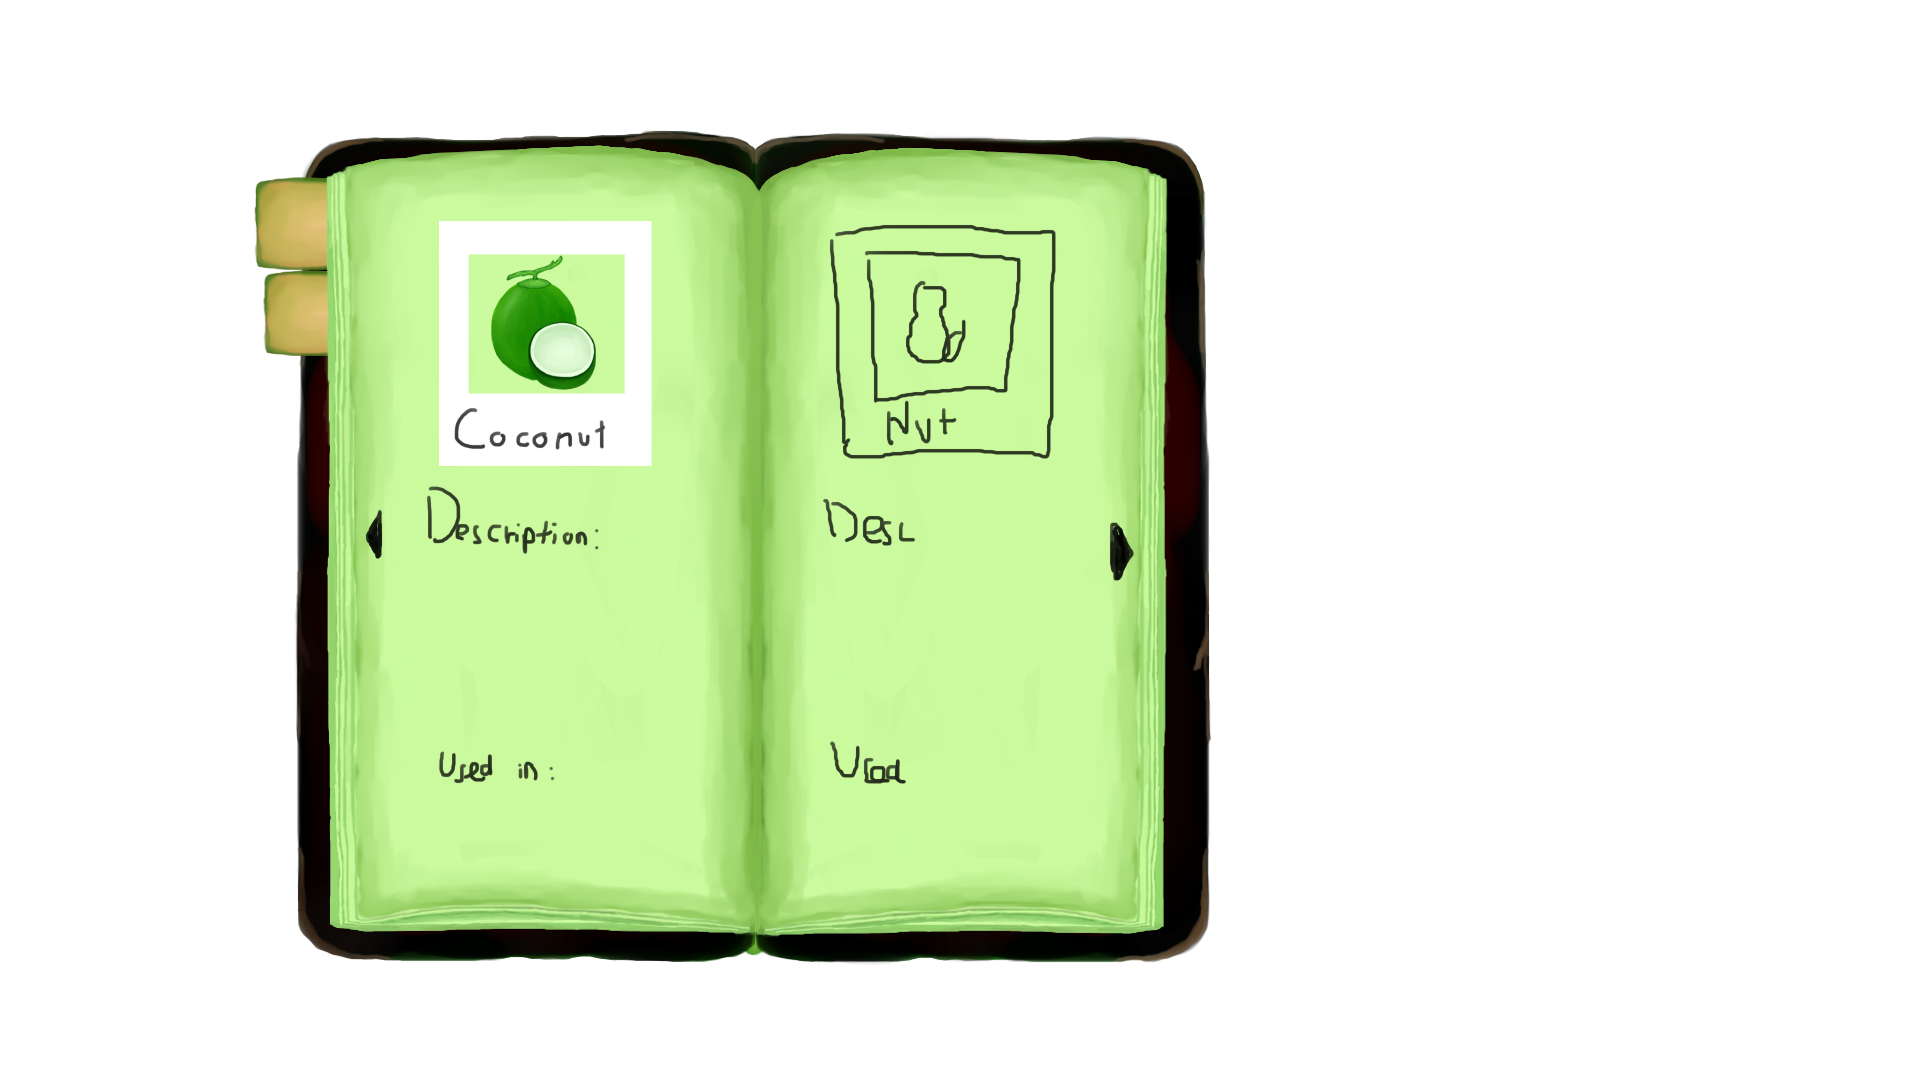 Coconut
Description:
Used in:
Nut
Desc
Used